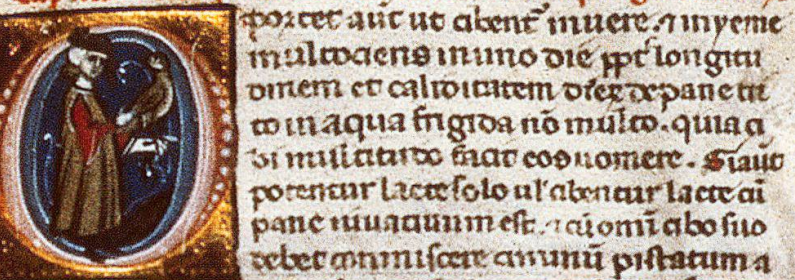 Oportet aut ut cibent̃ in uere. ⁊ in yeme
multociens in uno die ppt̃ longitu
dinem et caliditatem dieꝝ de pane tin
to in aqua frigida nō multo. quia ci
bi multitudo facit eos uomere. Si aut̃
potentur lacte solo ul' cibentur lacte cū
pane iuuatiuum est. ⁊ cū omi cibo suo
debet commiscere ciminū pistatum a